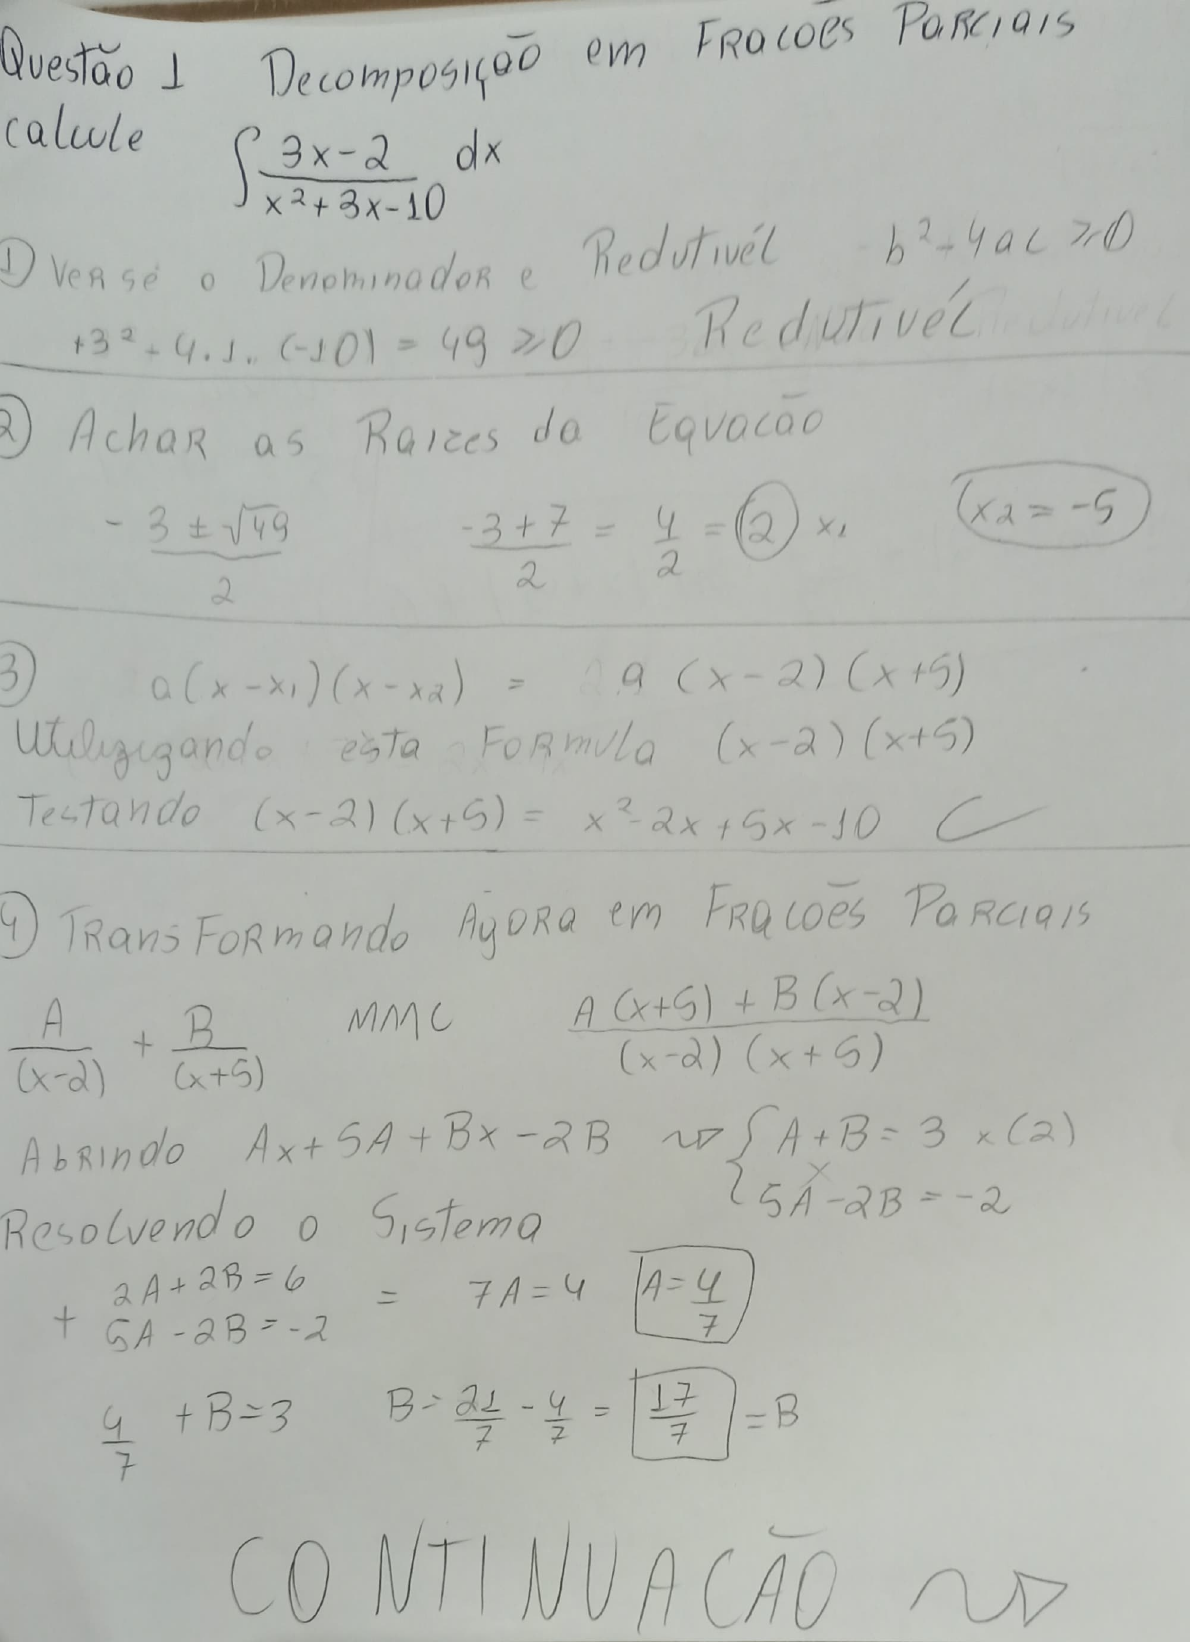 Questão 1 Decomposição em Fracoēs Parciais
calcule ∫ 3x-2 / x²+3x-10 dx
① Ver se o Denominador e Redutivél b²-4ac ⩾0
+3² - 4.1.. (-10) = 49 ⩾0 Redutivél
② Achar as Raizes da Equacão
- 3 ± √49 / 2 -3+7 / 2 = 4/2 = 2 x₁ x2 = -5
③ a(x-x₁)(x-x2) = a (x-2)(x+5)
Utilizigando esta Formula (x-2)(x+5)
Testando (x-2)(x+5) = x²-2x+5x-10
④ Transformando Agora em Fracoēs Parciais
A/(x-2) + B/(x+5) MMC A(x+5) + B(x-2) / (x-2) (x+5)
Abrindo Ax+5A+Bx-2B { A+B=3 x(2)
5A-2B=-2
Resolvendo o Sistema
+ 2A+2B=6 = 7A=4 A=4/7
5A-2B=-2
4/7 +B=3 B= 21/7 - 4/7 = 17/7 = B
CONTINUACÃO